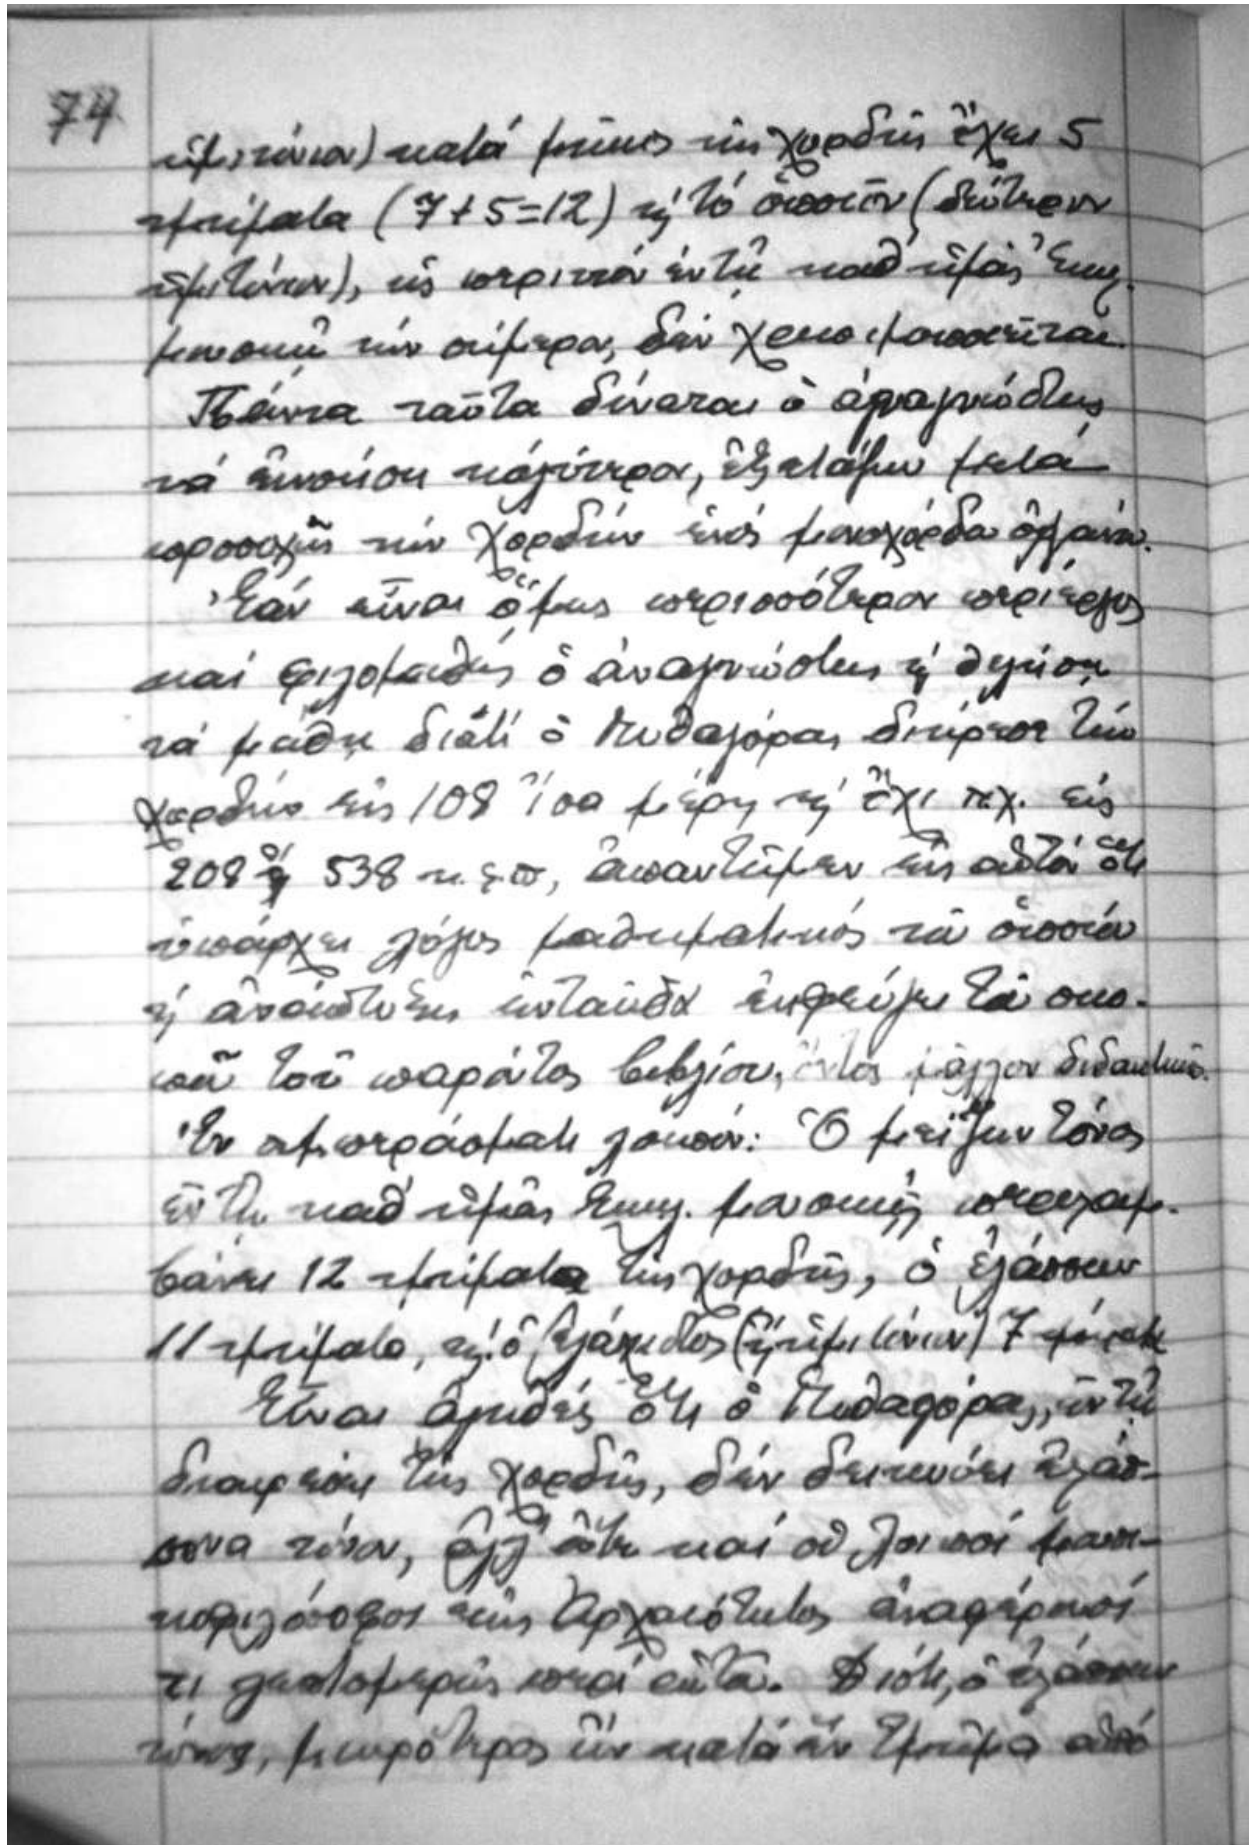 74
ἡμιτόνιον) κατά μῆκος τῆς χορδῆς ἔχει 5
τμήματα (7+5=12) ἤ τό ὁποῖον (δεύτερον
ἡμιτόνιον), ὡς περιττόν ἐν τῇ καθ' ἡμᾶς Ἐκκλ.
μουσικῇ τήν σήμερον, δέν χρησιμοποιεῖται.
Πάντα ταῦτα δύναται ὁ ἀναγνώστης
νά ἐννοήσῃ καλύτερον, ἐξετάζων μετά
προσοχῆς τήν χορδήν ἑνός μονοχόρδου ὀργάνου.
Ἐάν εἶναι ὅμως περισσότερον περίεργος
καί φιλομαθής ὁ ἀναγνώστης ἤ θελήσῃ
νά μάθῃ διατί ὁ Πυθαγόρας διῄρεσε τήν
χορδήν εἰς 108 ἴσα μέρη ἤ ὄχι π.χ. εἰς
208 ἤ 538 κ.λ.π, ἀπαντῶμεν εἰς αὐτόν ὅτι
ὑπάρχει λόγος μαθηματικός τοῦ ὁποίου
ἡ ἀνάπτυξις ἐνταῦθα ἐκφεύγει τοῦ σκο-
ποῦ τοῦ παρόντος βιβλίου, ὄντος μᾶλλον διδακτικοῦ.
Ἐν συμπεράσματι λοιπόν: Ὁ μείζων τόνος
ἐν τῇ καθ' ἡμᾶς Ἐκκλ. μουσικῇ περιλαμ-
βάνει 12 τμήματα τῆς χορδῆς, ὁ ἐλάσσων
11 τμήματα, ἤ ὁ ἐλάχιστος (ἤ ἡμιτόνιον) 7 τμήματα
Εἶναι ἀληθές ὅτι ὁ Πυθαγόρας, ἐν τῇ
διαιρέσει τῆς χορδῆς, δέν δεικνύει ἐλάσ-
σονα τόνον, ἀλλ' οὔτε καί οἱ λοιποί μουσι-
κοφιλόσοφοι τῆς Ἀρχαιότητος ἀναφέρουσί
τι λεπτομερῶς περί αὐτοῦ. Διότι, ὁ ἐλάσσων
τόνος, μικρότερος ὤν κατά ἕν τμῆμα ἀπό